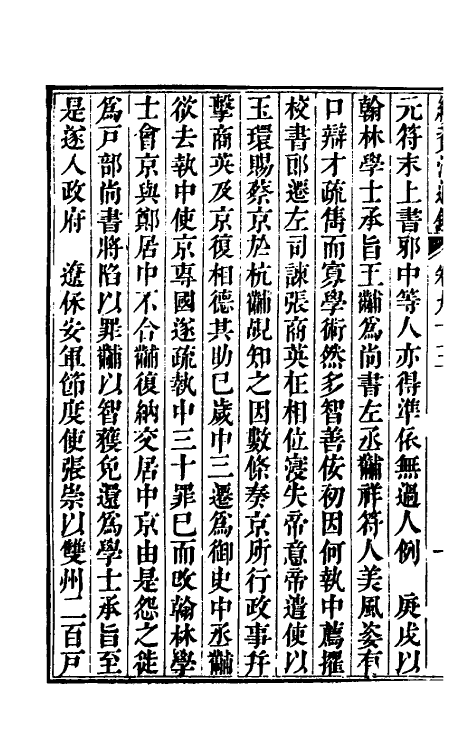 元符末上書邪中等人亦得準依無過人例　庚戌以
翰林學士承旨王黼爲尚書左丞黼祥符人美風姿有
口辯才疏雋而寡學術然多智善佞初因何執中薦擢
校書郎遷左司諫張商英在相位寖失帝意帝遣使以
玉環賜蔡京於杭黼覘知之因數條奏京所行政事幷
擊商英及京復相德其助己歲中三遷爲御史中丞黼
欲去執中使京專國遂疏執中三十罪已而改翰林學
士會京與鄭居中不合黼復納交居中京由是怨之徙
爲戸部尚書將陷以罪黼以智獲免還爲學士承旨至
是遂入政府　遼保安軍節度使張崇以雙州二百戸